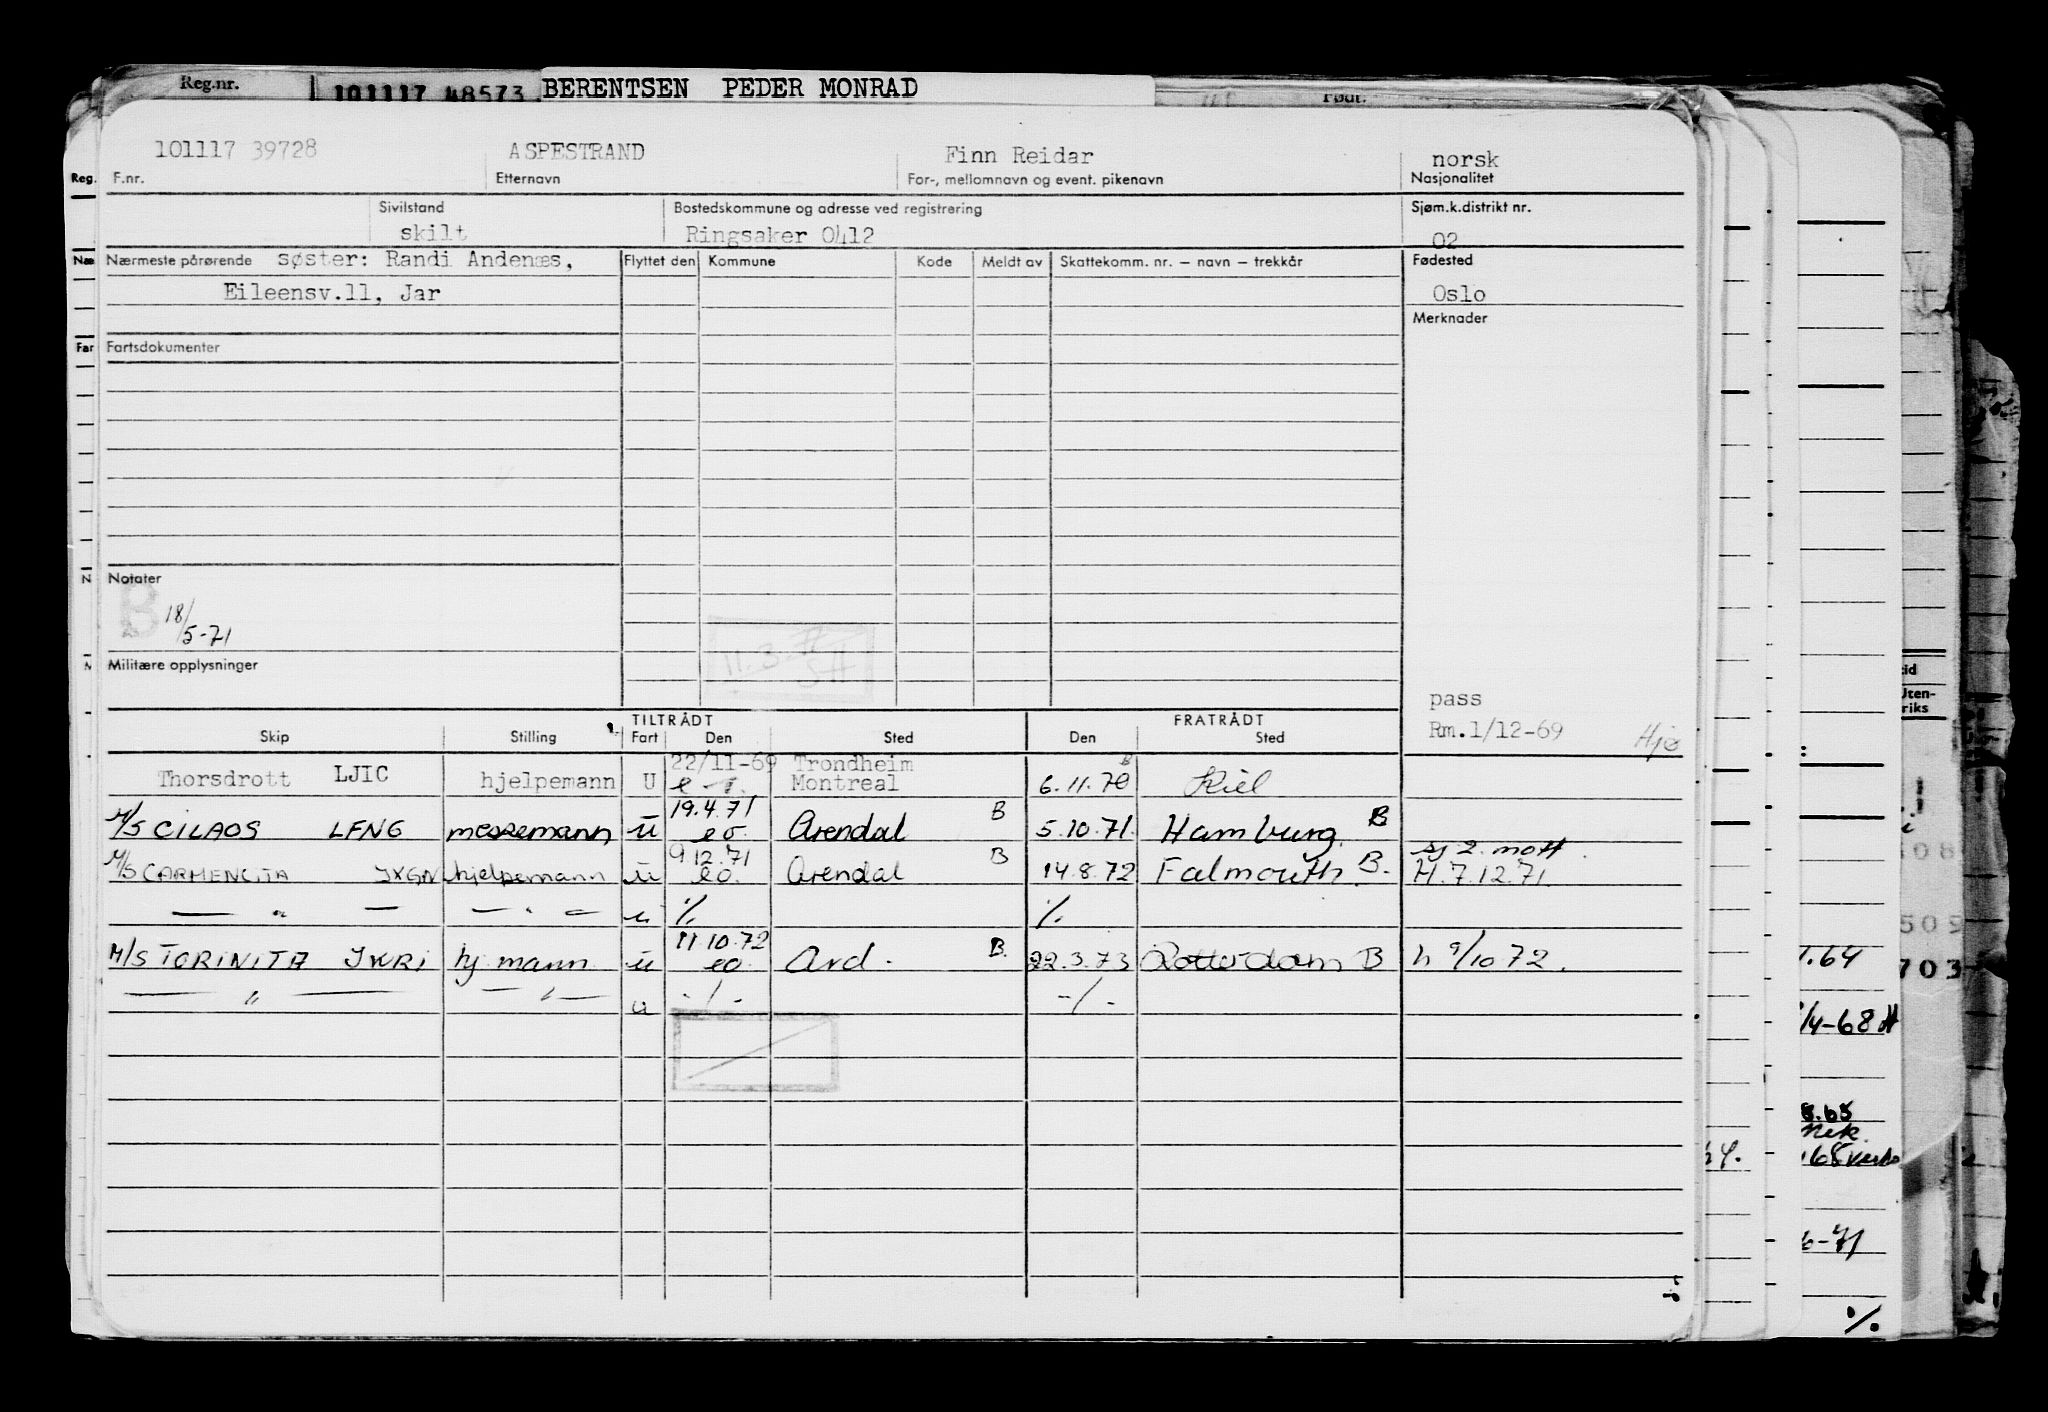 Reg.nr. 101117 48573 BERENTSEN PEDER MONRAD Født.
101117 39728 ASPESTRAND Finn Reidar norsk
Reg. F.nr. Etternavn For-, mellomnavn og event. pikenavn Nasjonalitet
Sivilstand Bostedskommune og adresse ved registrering Sjøm.k.distrikt nr.
skilt Ringsaker 0412 02
Næ Nærmeste pårørende søster: Randi Andenæs, Flyttet den Kommune Kode Meldt av Skattekomm. nr. – navn – trekkår Fødested
Eileensv.11, Jar Oslo
Merknader
Far Fartsdokumenter
N Notater
B 18/5-71
M Militære opplysninger
11.3.77 SH
pass
Rm.1/12-69 Hjø
TILTRÅDT FRATRÅDT
Skip Stilling Fart Den Sted Den Sted
22/11-69 Trondheim B
Thorsdrott LJIC hjelpemann U Montreal 6.11.70 Kiel
19.4.71 B B
M/S CILAOS LFNG messemann u eo. Arendal 5.10.71. Hamburg
9.12.71 B sj 2. mott.
M/S CARMENCITA JXGN hjelpemann u eo. Arendal 14.8.72 Falmouth B. H.7.12.71.
— " — — " — u ./. ./.
11.10.72 B.
M/S TORINITA JXRI hj. mann u eo. Ard. 22.3.73 Rotterdam B h 9/10 72.
— " — — " — u -/- -/-
tid
Uten-
riks
508
509
1.64 703
/4-68 H
8.65
64. 65
6-71
./.